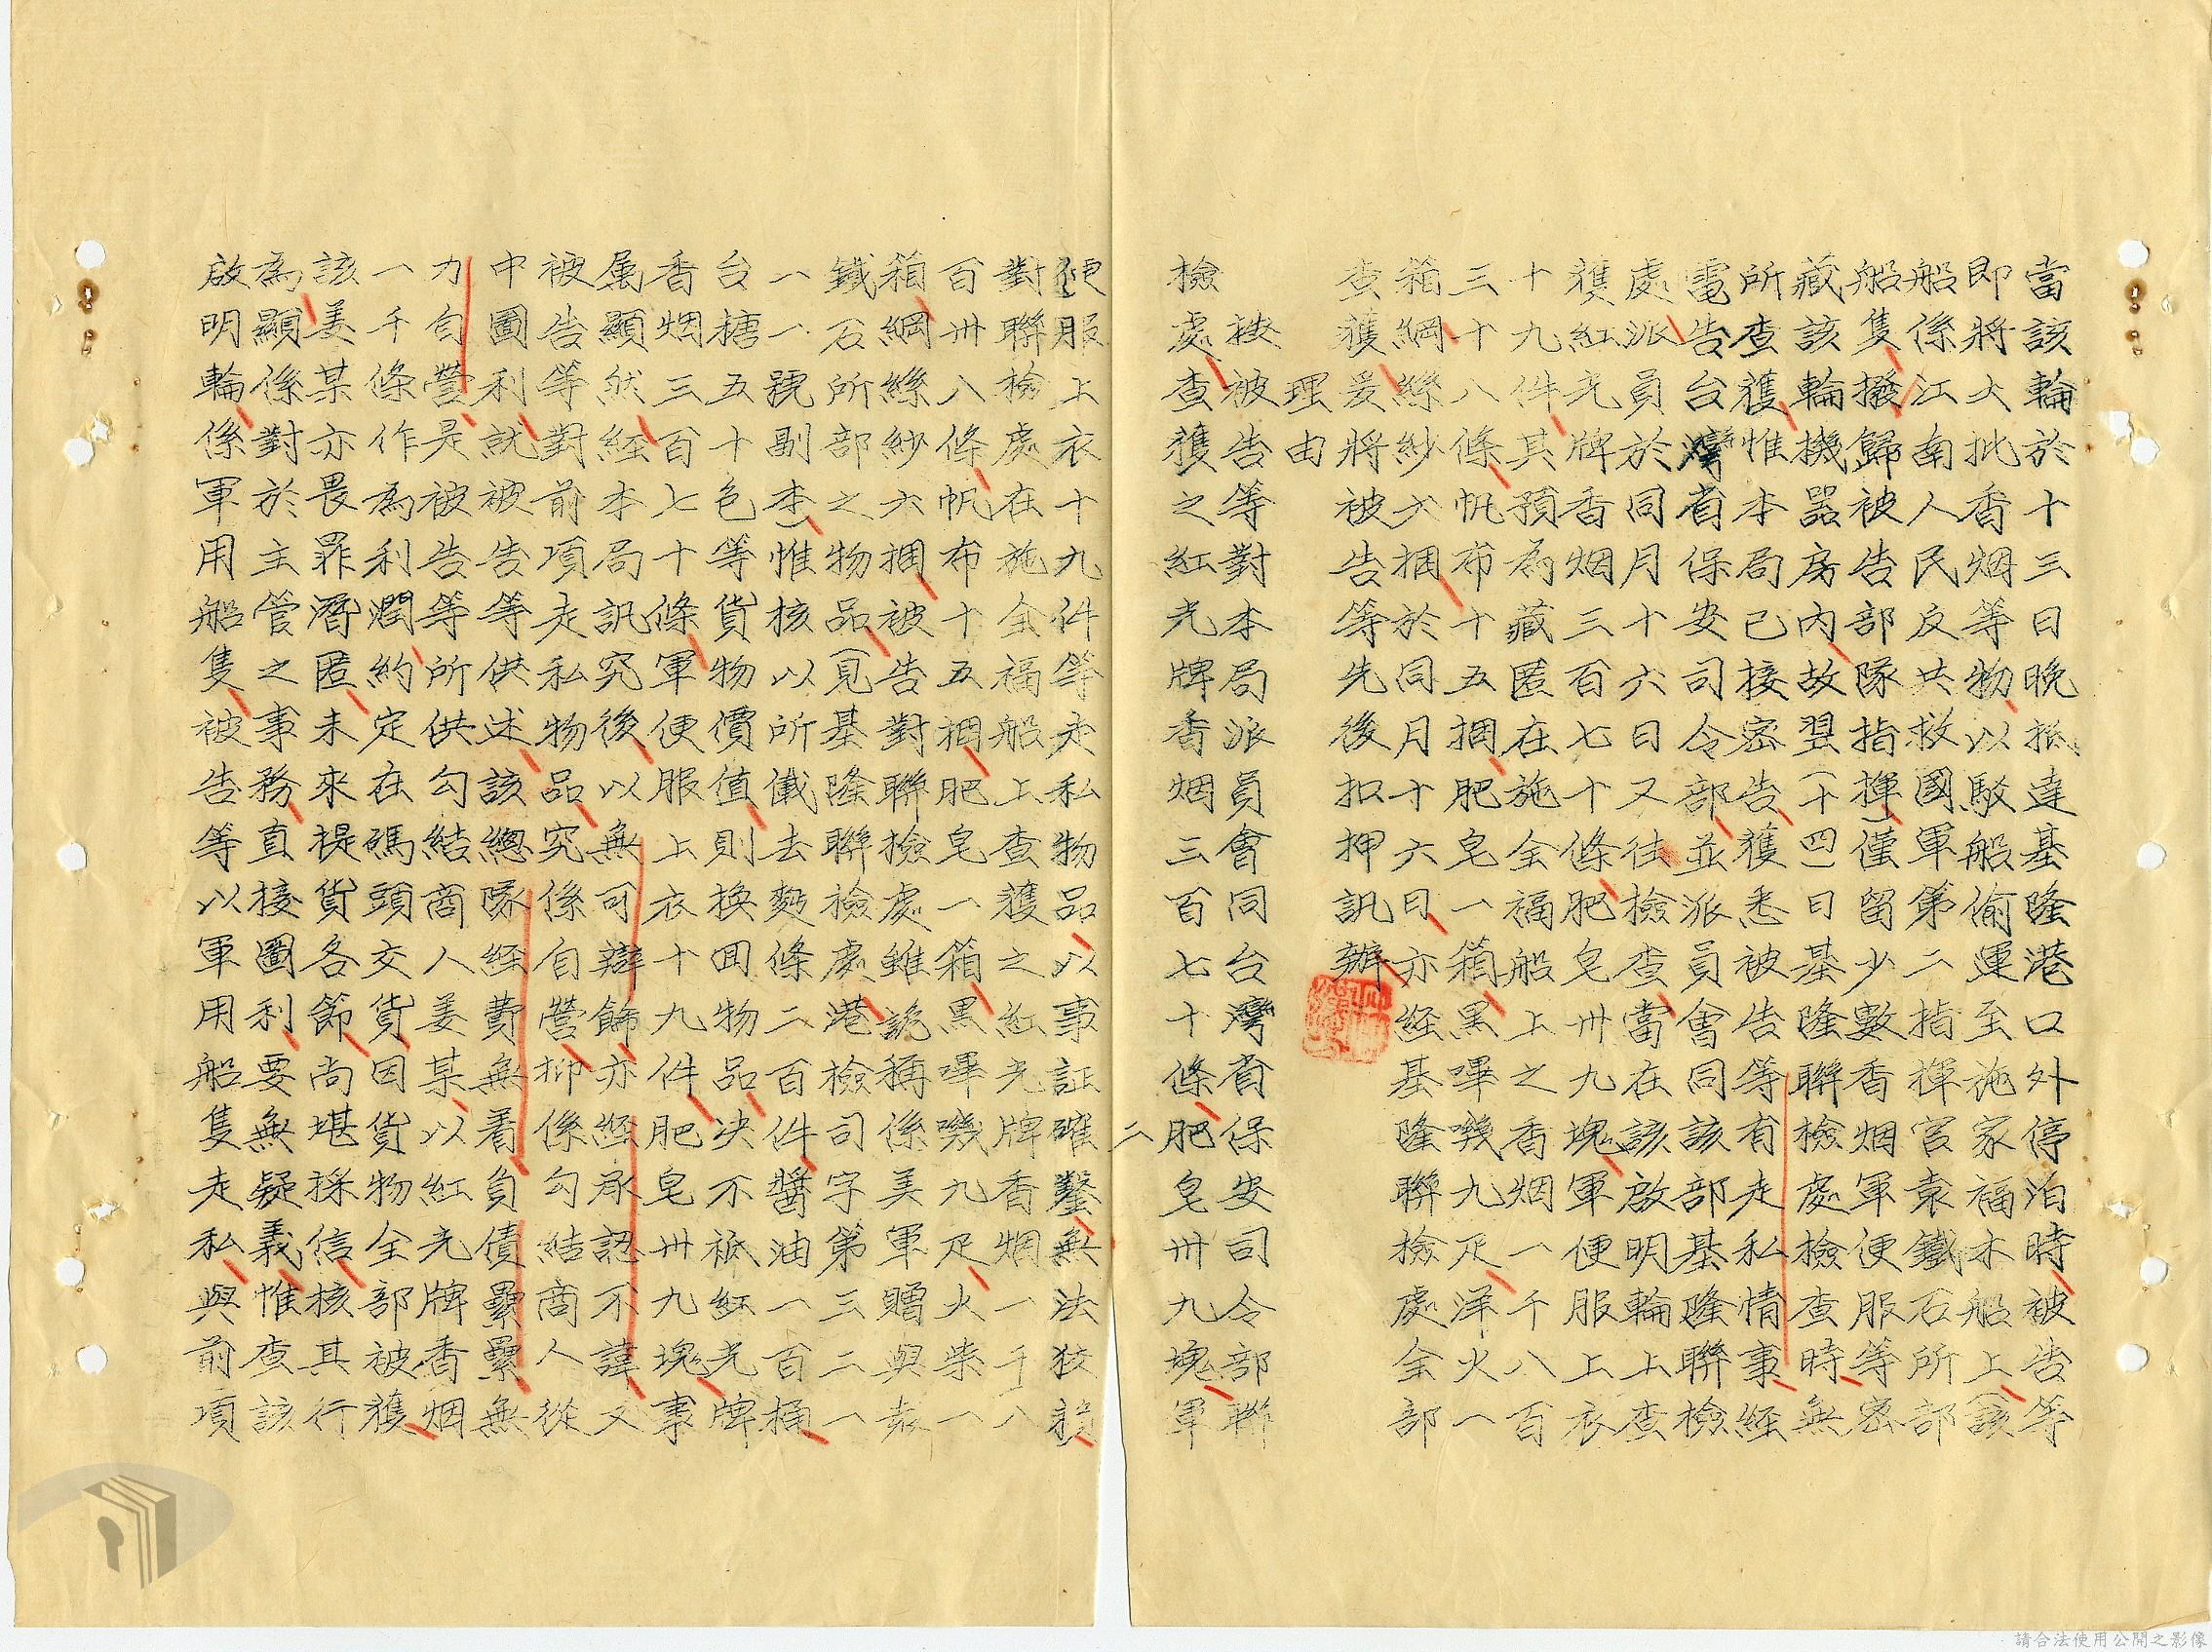 當該輪於十三日晚抵達基隆港口外停泊時被告等
即將大批香烟等物以駁船偷運至施家福木船上(該
船係江南人民反共救國軍第二指揮官袁鐵石所部
船隻撥歸被告部隊指揮)僅留少數香烟軍便服等密
藏該輪機器房內故翌(十四)日基隆聯檢處檢查時無
所查獲惟本局已接密告獲悉被告等有走私情事經
電告台灣省保安司令部並派員會同該部基隆聯檢
處派員於同月十六日又往檢查當在該啟明輪上查
獲紅光牌香烟三百七十條肥皂卅九塊軍便服上衣
十九件其預為藏匿在施全福船上之香烟一千八百
三十八條帆布十五捆肥皂一箱黑嗶嘰九疋洋火一
箱綢絲紗六捆於同月十六日亦經基隆聯檢處全部
查獲爰將被告等先後扣押訊辦
理由
按被告等對本局派員會同台灣省保安司令部聯
檢處查獲之紅光牌香烟三百七十條肥皂卅九塊軍
二
便服上衣十九件等走私物品以事証確鑿無法狡賴
對聯檢處在施全福船上查獲之紅光牌香烟一千八
百卅八條帆布十五捆肥皂一箱黑嗶嘰九疋火柴一
箱綢絲紗六捆被告對聯檢處雖詭稱係美軍贈與袁
鐵石所部之物品(見基隆聯檢處港檢司字第三二一
一一號副本)惟核以所儎去麪條二百件醬油一百桶
台糖五十包等貨物價值則換回物品决不祗紅光牌
香烟三百七十條軍便服上衣十九件肥皂卅九塊事
属顯然經本局訊究後以無可辯飾亦經承認不諱又
被告等對前項走私物品究係自營抑係勾結商人從
中圖利就被告等供述該總隊經費無着負債纍纍無
力自營是被告等所供勾結商人姜某以紅光牌香烟
一千條作為利潤約定在碼頭交貨因貨物全部被獲
該姜某亦畏罪潛匿未來提貨各節尚堪採信核其行
為顯係對於主管之事務直接圖利要無疑義惟查該
啟明輪係軍用船隻被告等以軍用船隻走私與前項
請合法使用公開之影像